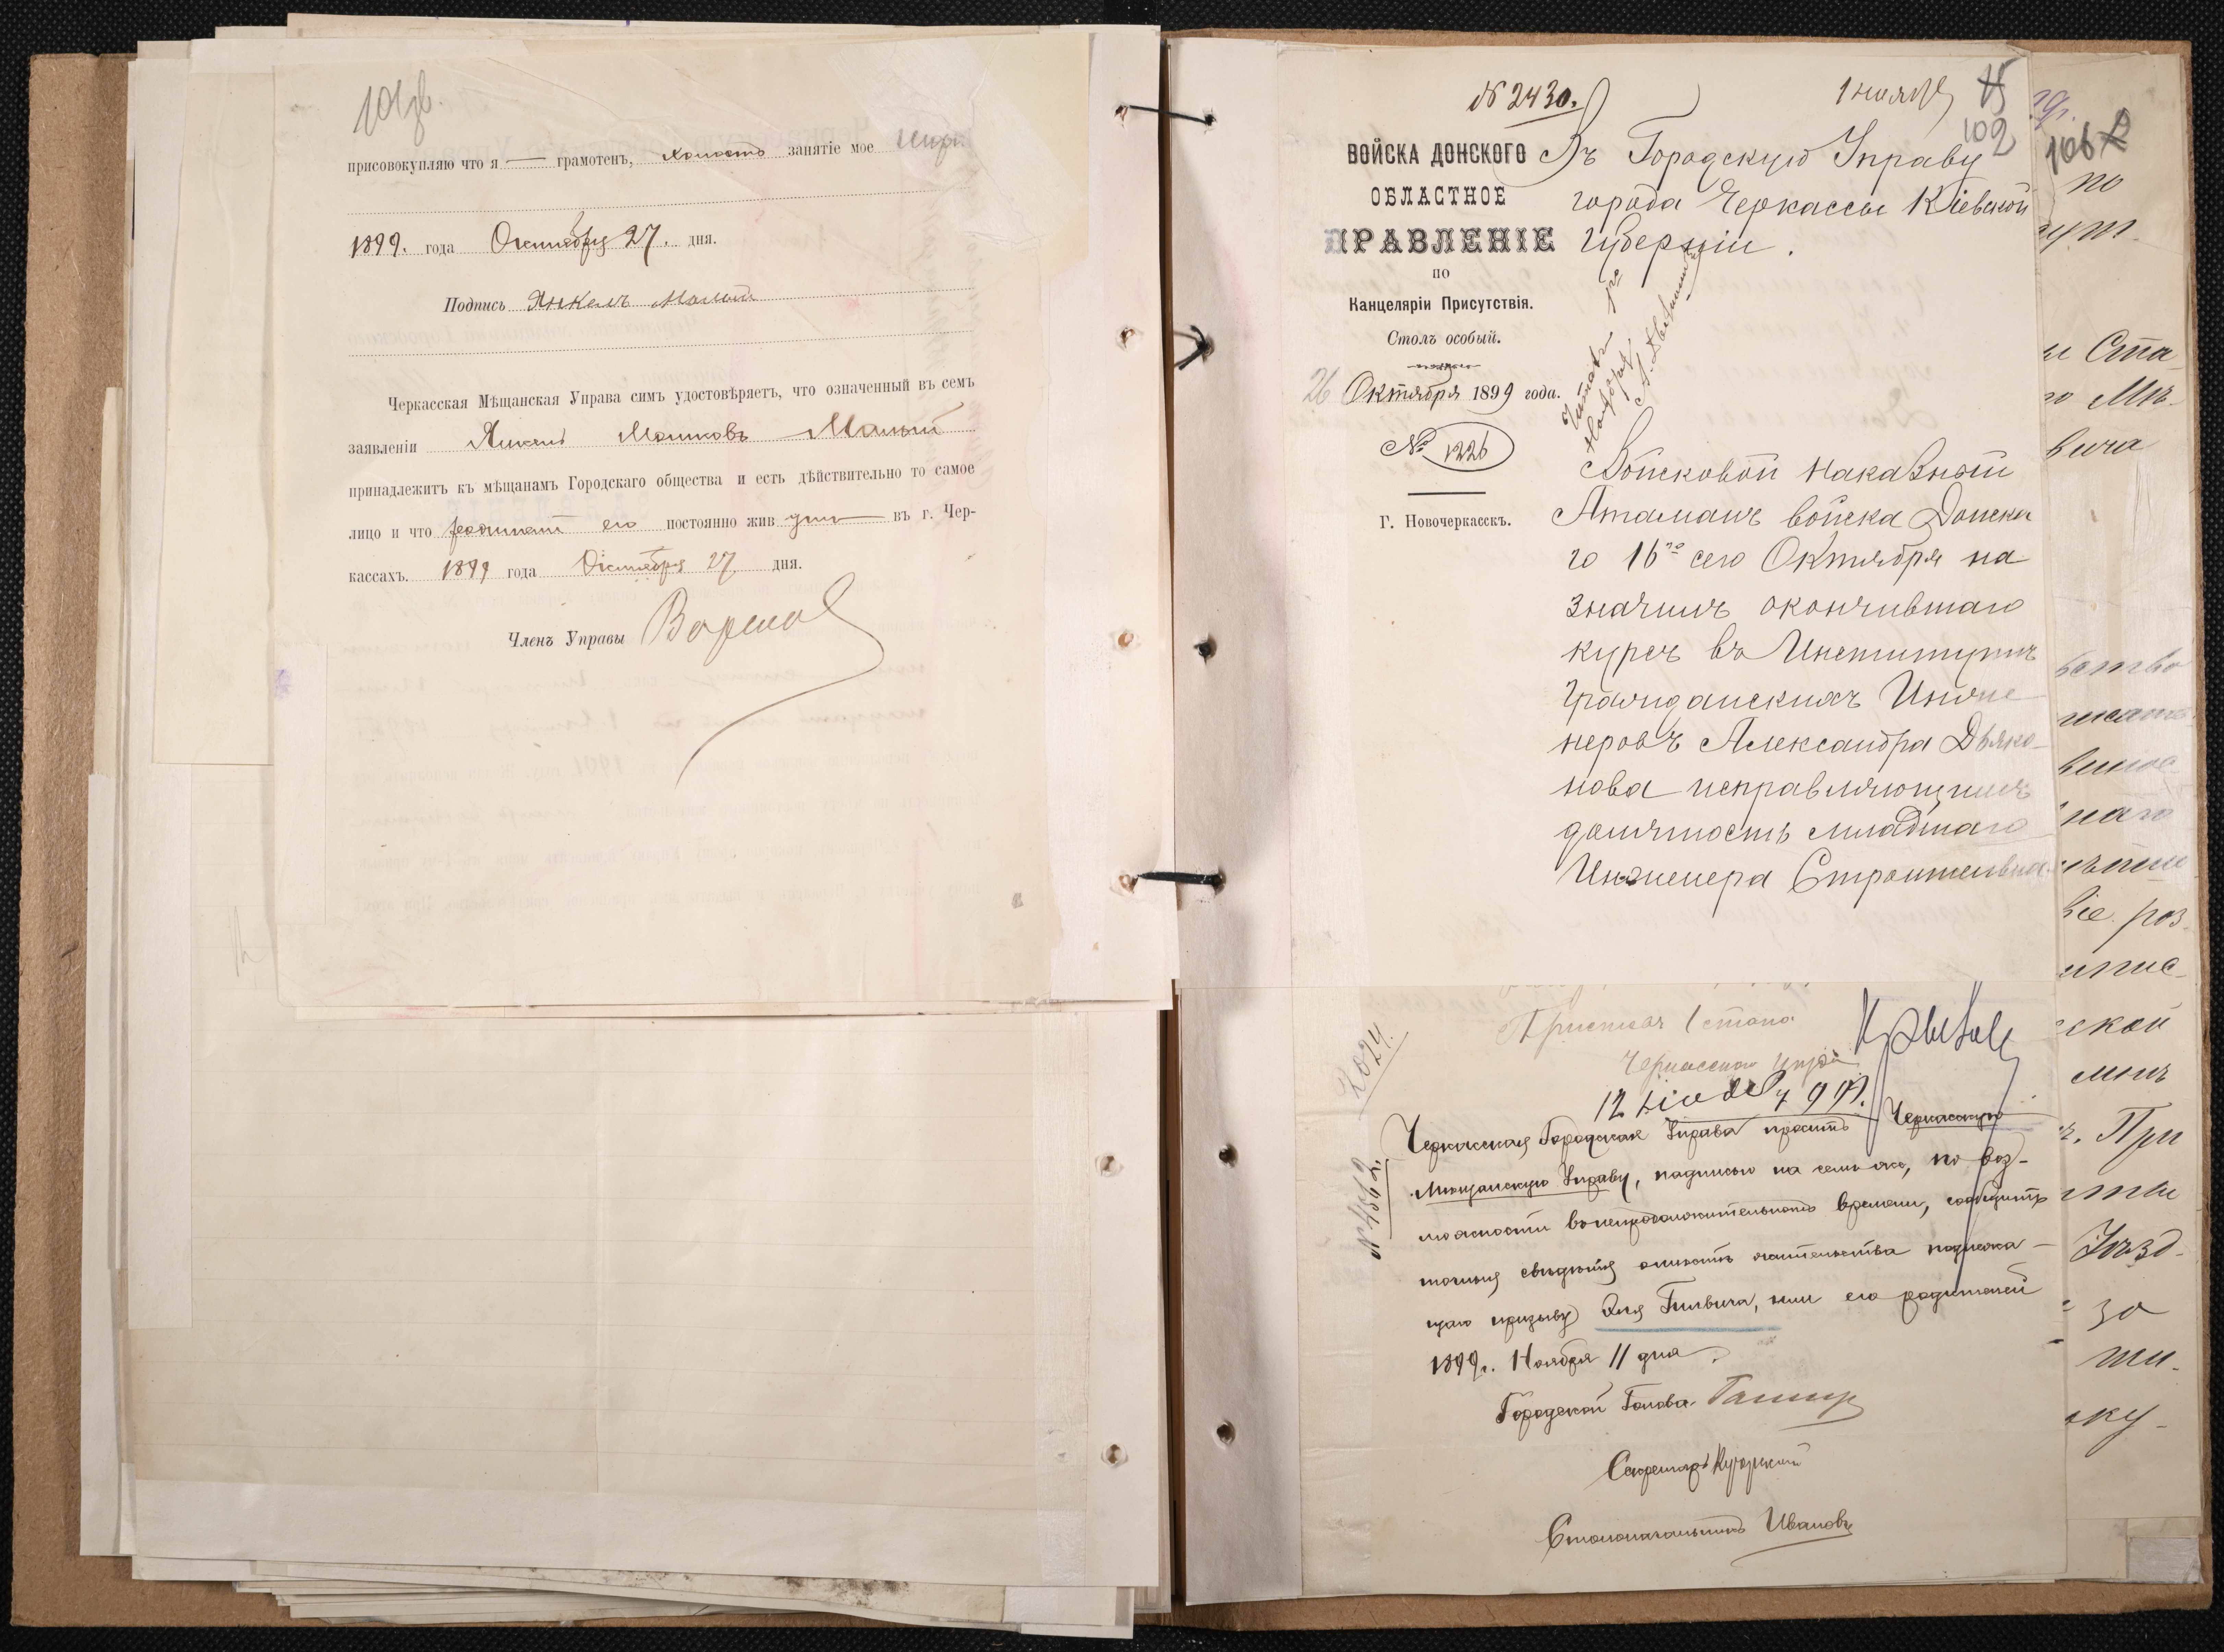 101 зв.
присовокупляю что я — грамотенъ, холостъ занятіе мое
1899. года Октября 27. дня.
Подпись Янкель Малый
Черкасская Мѣщанская Управа симъ удостовѣряетъ, что означенный въ семъ
заявленіи Янкель Мошковъ Малый
принадлежитъ къ мѣщанамъ Городскаго общества и есть дѣйствительно то самое
лицо и что родители его постоянно жив утъ въ г. Чер-
кассахъ. 1899 года Октября 27 дня.
Членъ Управы
№ 2430.
1 ноября
102
ВОЙСКА ДОНСКОГО
ОБЛАСТНОЕ
ПРАВЛЕНІЕ
по
Канцеляріи Присутствія.
Столъ особый.
26 Октября 1899 года.
№ 1226
Г. Новочеркасскъ.
Въ Городскую Управу
города Черкассы Кіевской
губерніи.
Войсковой Наказный
Атаманъ войска Донска
го 16го сего Октября на
значилъ окончившаго
курсъ въ Институтѣ
Гражданскихъ Инже
неровъ Александра Дьяко-
нова исправляющимъ
должность младшаго
Инженера Строительна
Приставъ 1 стана
2024.
№ 4562.
Черкасская Городская Управа проситъ Черкасскую
Мѣщанскую Управу, надписью на семъ же, по воз-
можности въ непродолжительномъ времени, сообщить
точныя свѣдѣнія о мѣстѣ жительства подлежа-
щаго призыву Гилвича, или его родителей
1899 г. Ноября 11 дня.
Городской Голова
Секретарь
Столоначальникъ Ивановъ
106
по
и Ста
го Мѣ-
вича
ство
наго
віе. роз
ской
При
Уѣзд-
за